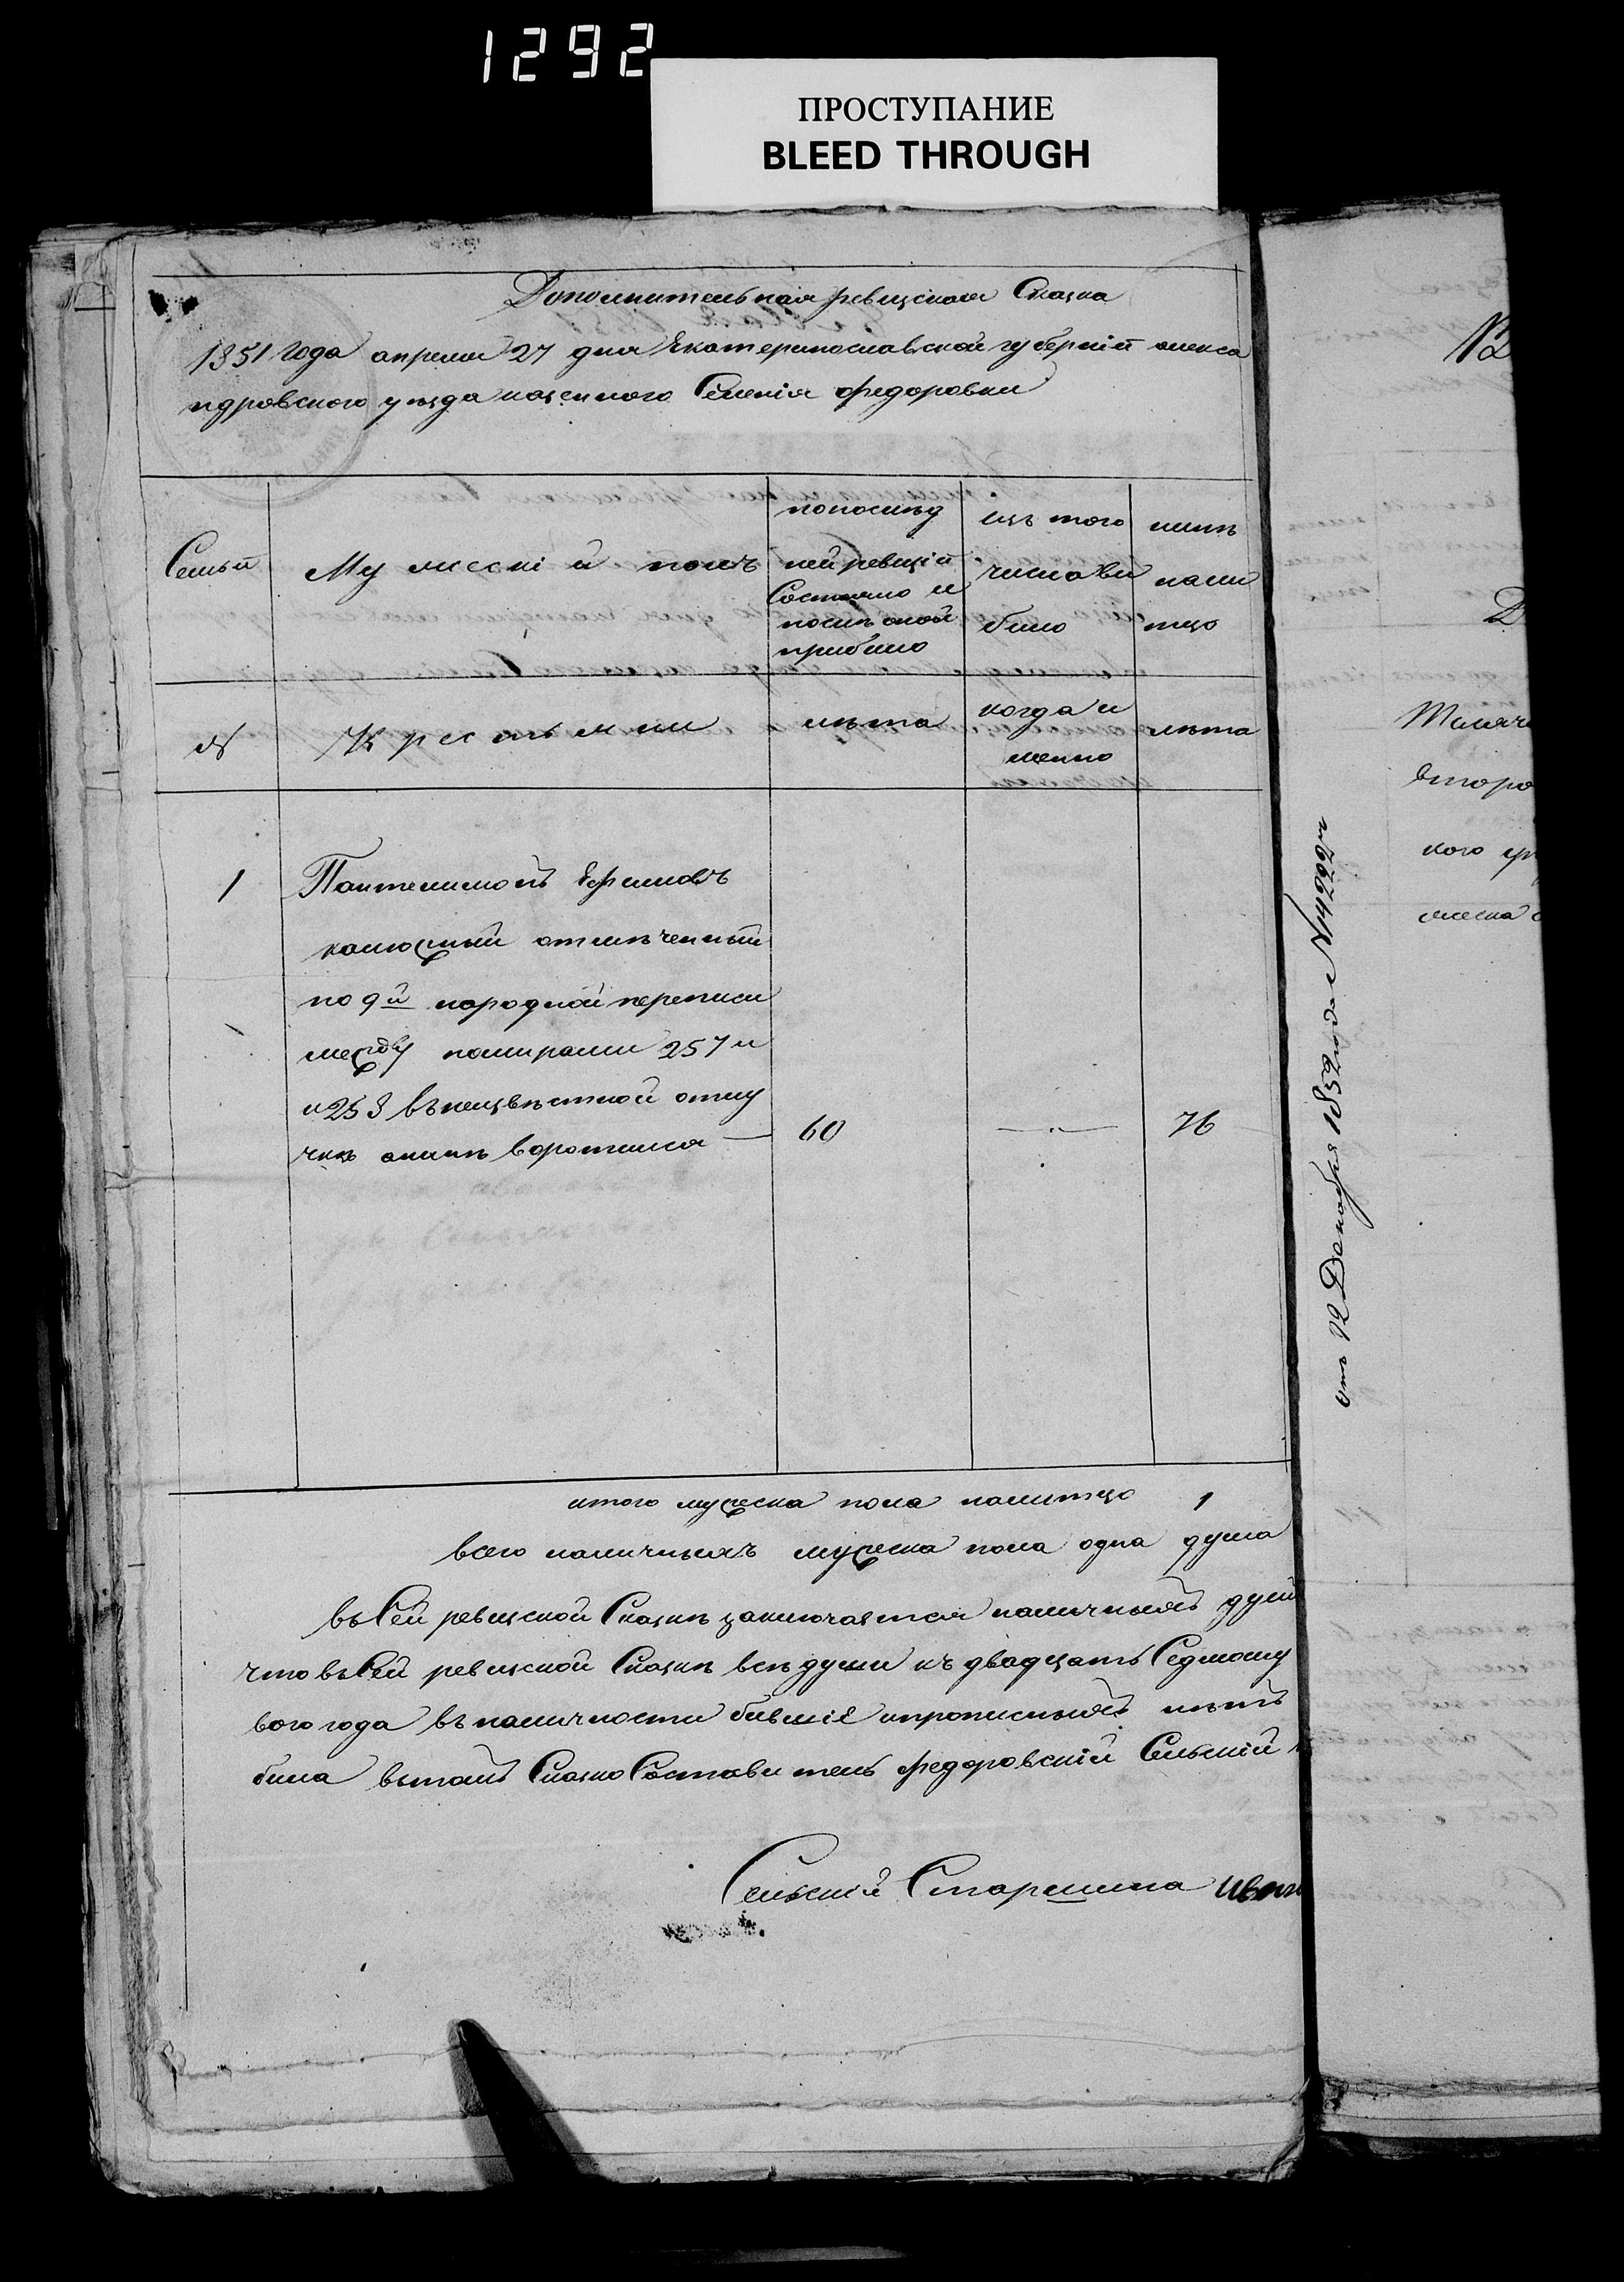 1292
ПРОСТУПАНИЕ
BLEED THROUGH
Дополнительная ревизская Сказка
1851 года апреля 27 дня Екатеринославской губерній алекса
ндровского уѣзда казенного Селенія федоровки
Семьи
Мужескій полъ
попослѣд
ней ревизіи
Состояло и
послѣ оной
прибило
изъ того
числа ви
било
нинѣ
нали
тцо
№
Крестьяни
лѣта
когда и
менно
лѣта
1
Пантелимонъ Ефимовъ
калюжный отмѣченный
по 9й народной переписи
между номирами 257 и
и 258 въ неизвѣстной отлу
чкѣ анинѣ воротился
60
—"—
76
итого мужеска пола налитцо 1
всего наличныхъ мужеска пола одна душа
въ Сей ревизской Сказкѣ заключается наличныхъ душъ
что въ Сей ревизской Сказкѣ всѣ души къ двадцать Седмому
вого года въ наличности бившіе ипрописныхъ нѣтъ
била втомъ Сказко Составитель федоровскій Сельскій
Сельскій Старшина иван
отъ 12 Декабря 1852 года N 14222м
№
Д
второ
кого
жеска